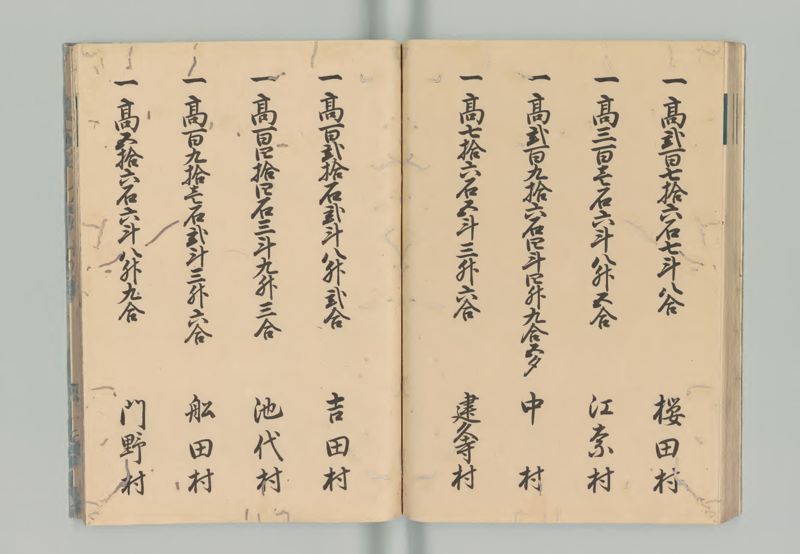 一高弐百七拾六石七斗八合 桜田村
一高三百壱石六斗八升五合 江奈村
一高弐百九拾六石四斗四升九合五夕 中村
一高七拾六石五斗三升六合 建久寺村
一高百弐拾石弐斗八升弐合 吉田村
一高百四拾四石三斗九升三合 池代村
一高百九拾壱石弐斗三升六合 船田村
一高五拾六石六斗八升九合 門野村